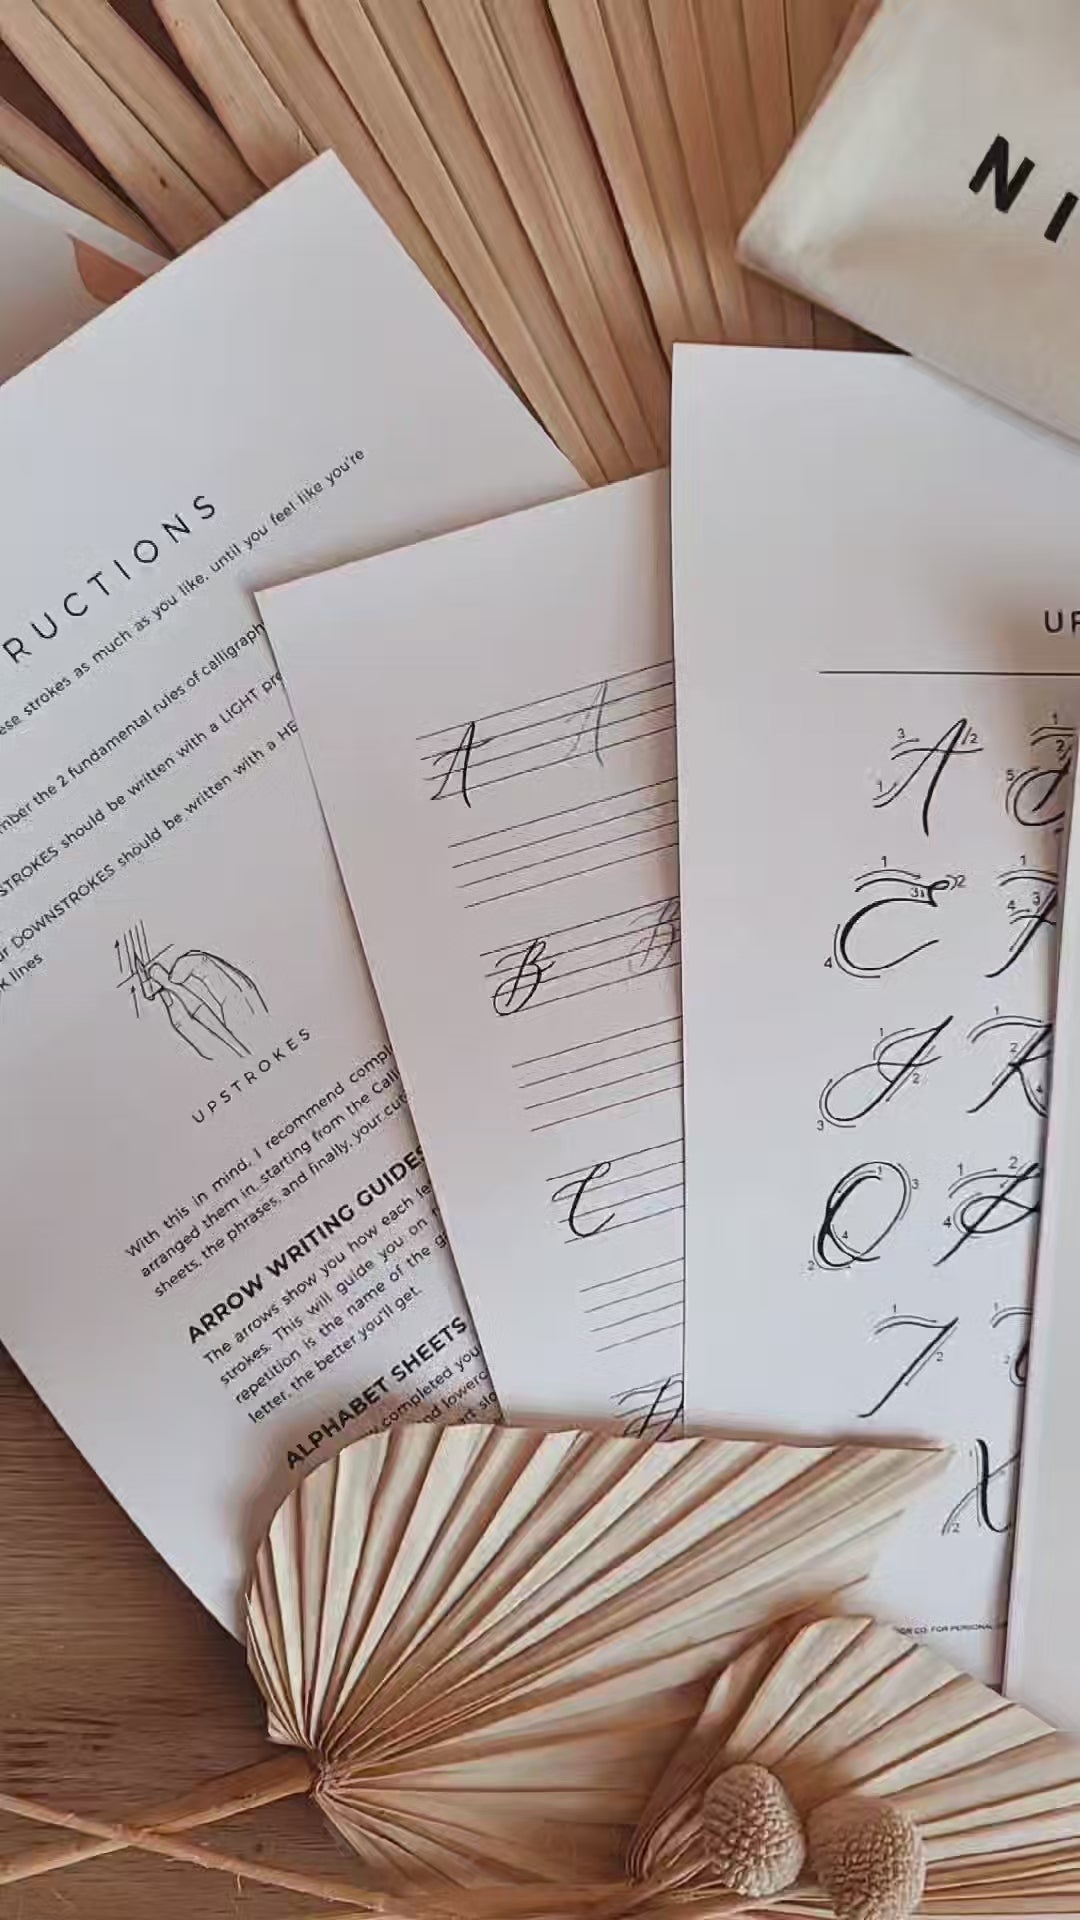 NI
RUCTIONS
ese strokes as much as you like, until you feel like you're
mber the 2 fundamental rules of calligraph
STROKES should be written with a LIGHT pre
ur DOWNSTROKES should be written with a HE
k lines
UPSTROKES
With this in mind, I recommend comple
arranged them in, starting from the Calli
sheets, the phrases, and finally, your cut
ARROW WRITING GUIDES
The arrows show you how each le
strokes. This will guide you on
repetition is the name of the g
letter, the better you'll get.
ALPHABET SHEETS
completed you
nd lowerc
rt slo
A A
B B
C
D
UP
3 1/2 A 1
1 2 5
1 C 3 2 4
1 4 3
1 J 2 3
1 2 R 4
1 O 3 2 4
1 2 4
1 T 2
1 2
X 2
FOR PERSONAL